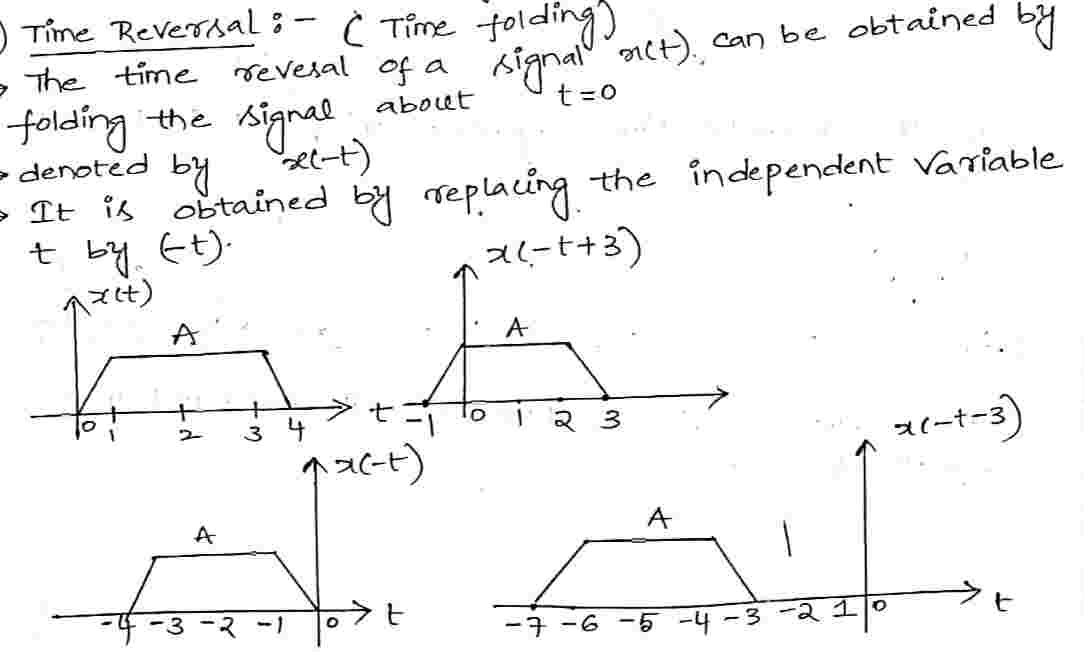 ) Time Reversal :- ( Time folding)
The time revesal of a signal x(t), can be obtained by
folding the signal about t=0
denoted by x(-t)
It is obtained by replacing the independent variable
t by (-t).
x(t)
A
0 1 2 3 4 t
x(-t+3)
A
-1 0 1 2 3
x(-t)
A
-4 -3 -2 -1 0 t
x(-t-3)
A
-7 -6 -5 -4 -3 -2 1 0 t